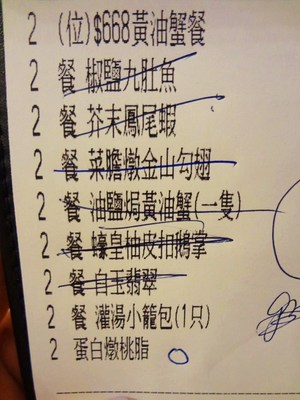 2 (位)$668黃油蟹餐
2 餐 椒鹽九肚魚
2 餐 芥末鳳尾蝦
2 餐 菜膽燉金山勾翅
2 餐 油鹽焗黃油蟹(一隻)
2 餐 蠔皇柚皮扣鵝掌
2 餐 白玉翡翠
2 餐 灌湯小籠包(1只)
2 蛋白燉桃脂